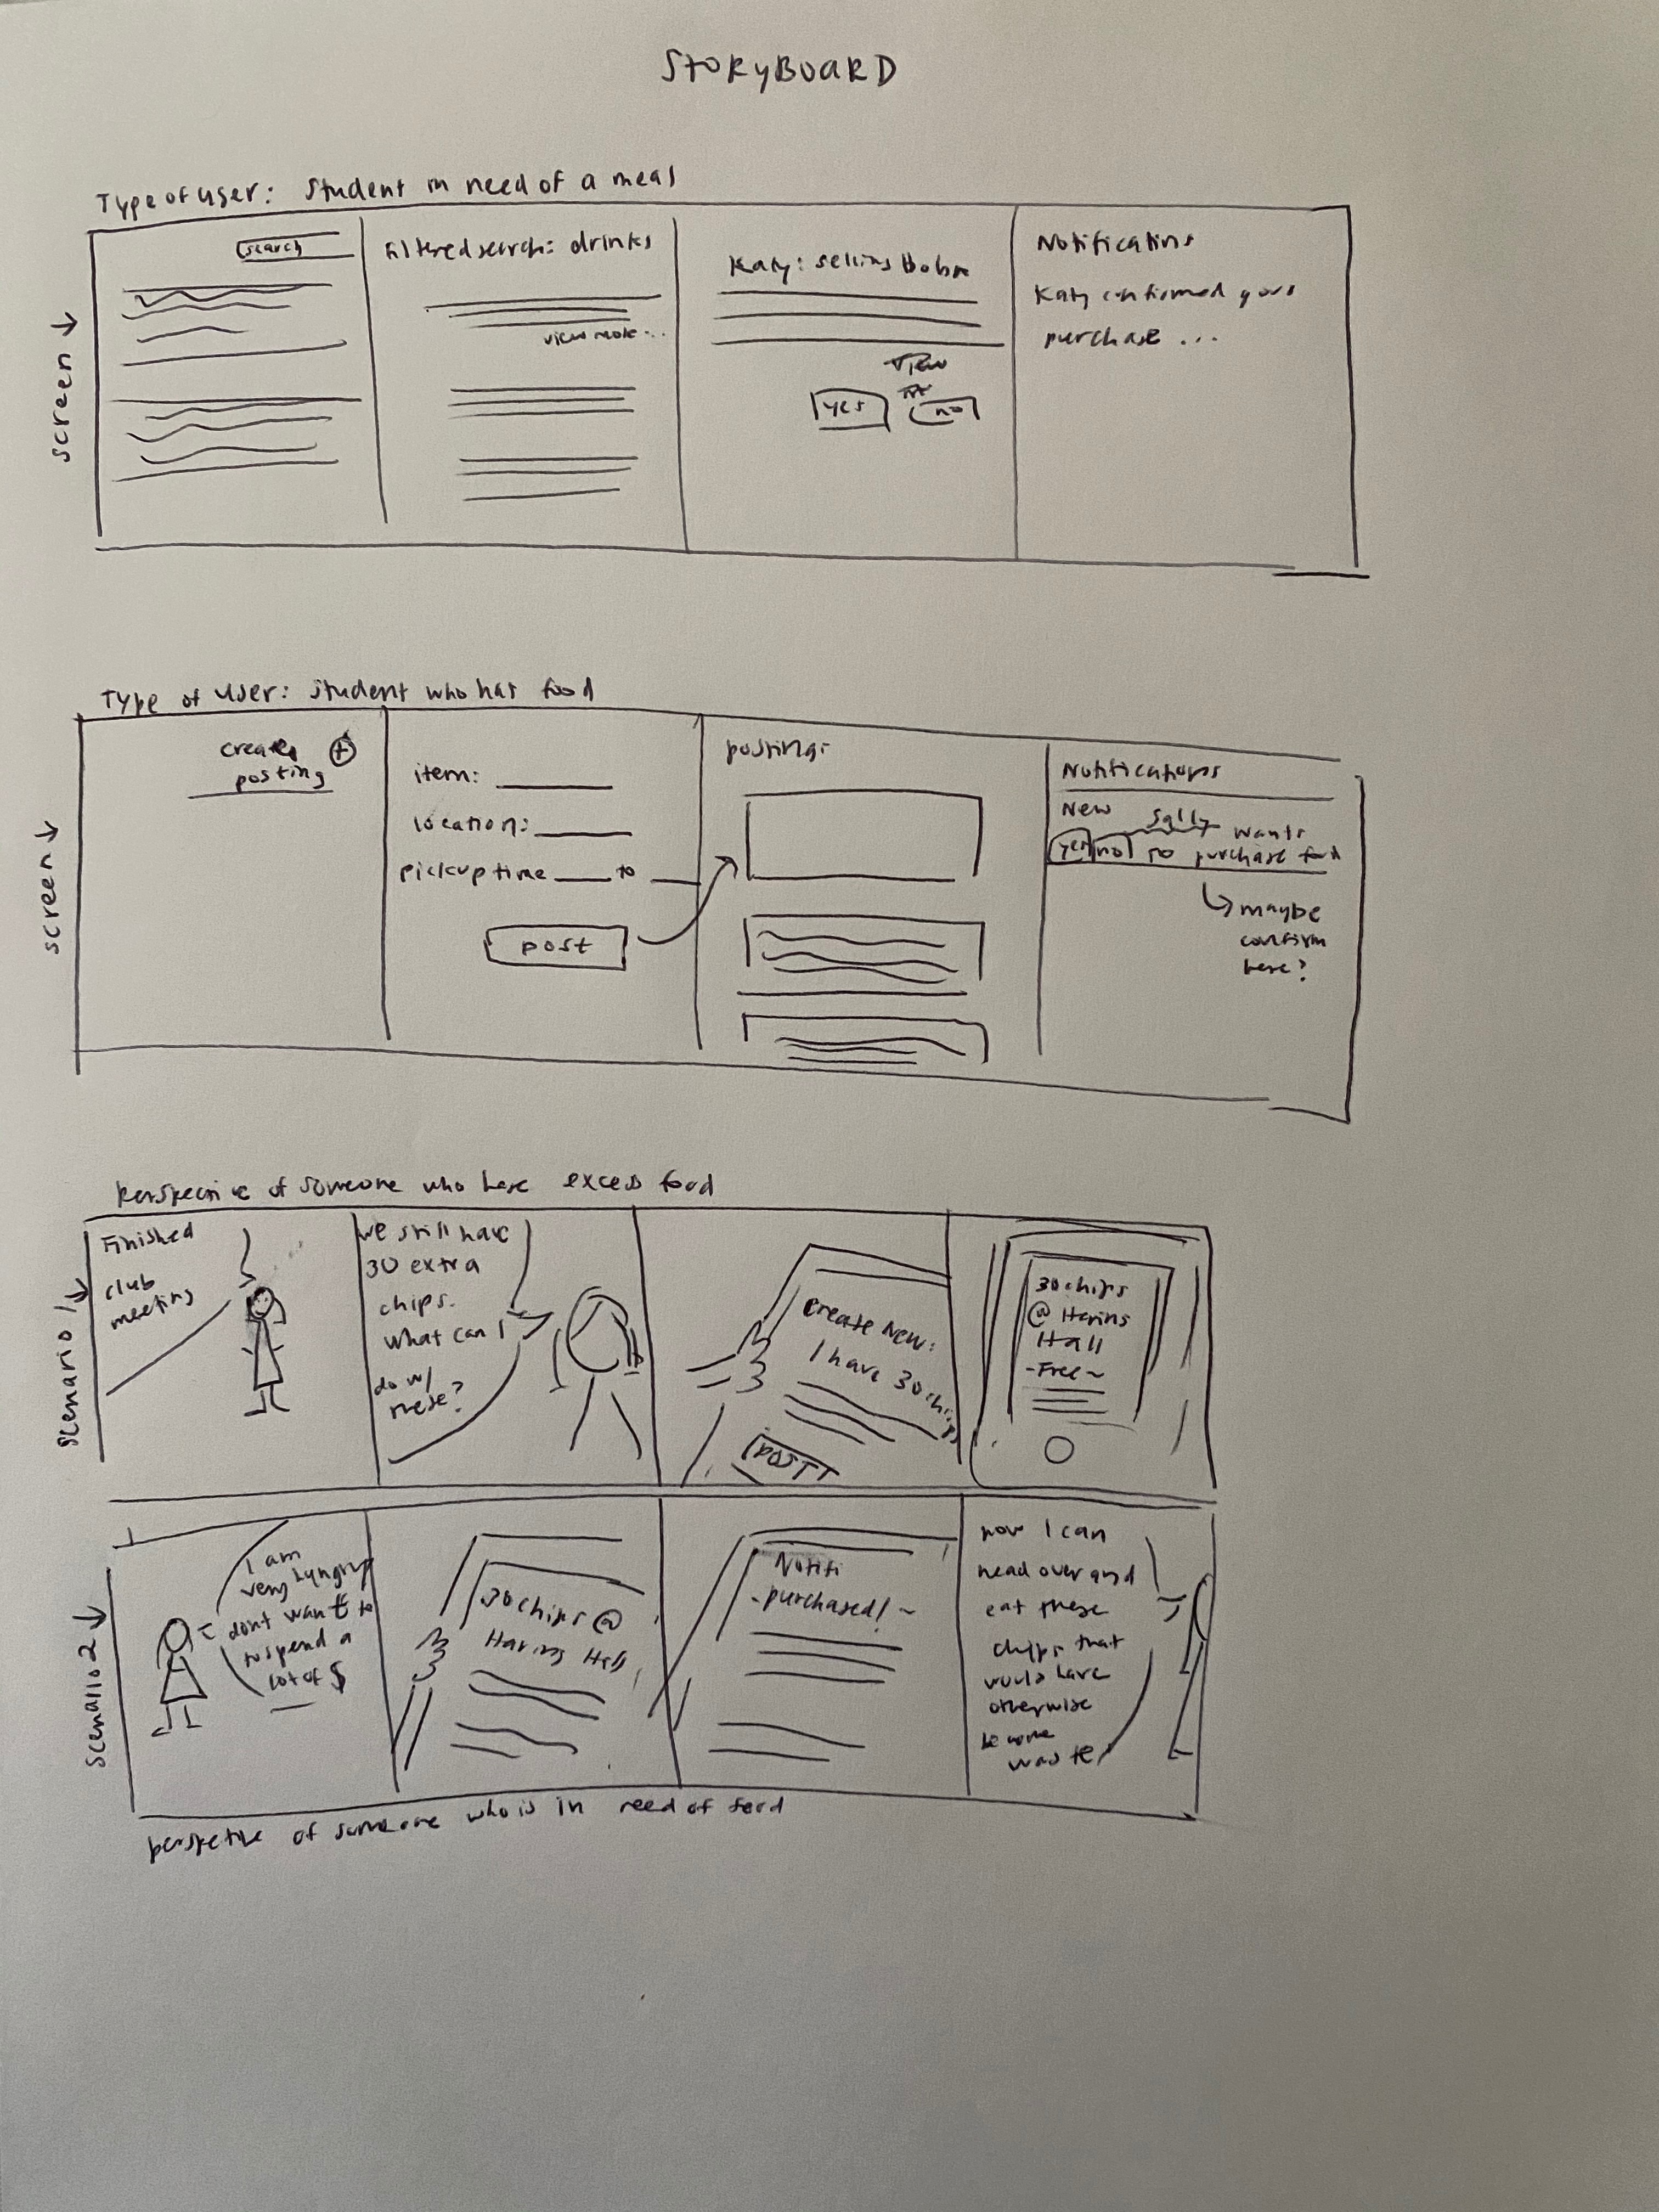 STORYBOARD
Type of user: student in need of a meal
screen →
search
Filtered search: drinks
view more...
Katy: selling Boba
view
yes
no
Notifications
Katy confirmed your
purchase ...
Type of user: student who has food
screen →
create
posting +
item:
location:
pickup time ___ to ___
post
postings
Notifications
New Sally wants
yes no to purchase food
↳ maybe
confirm
here?
perspective of someone who have excess food
scenario 1 →
Finished
club
meeting
we still have
30 extra
chips.
what can I
do w/
these?
create New:
I have 30 chips
POST
30 chips
@ Haring
Hall
-Free~
scenario 2 →
I am
very hungry
dont want to
to spend a
lot of $
30 chips @
Haring Hall
Notifi
-purchased! ~
now I can
head over and
eat these
chips that
would have
otherwise
become
waste!
perspetive of someone who is in need of food